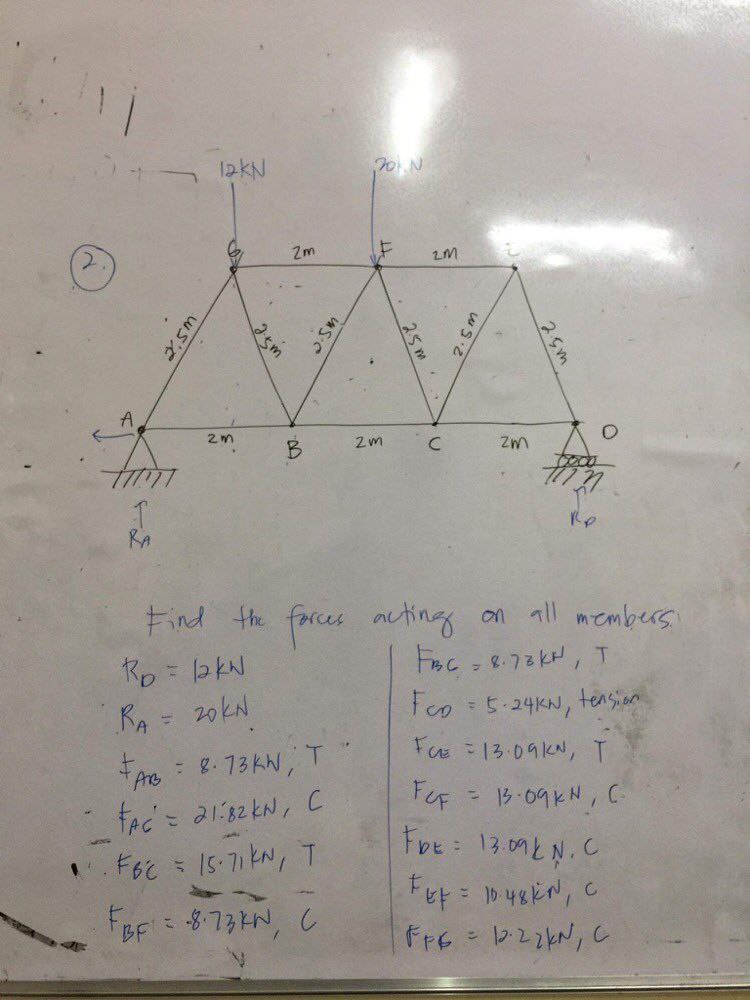 12kN
20kN
2.
G
2m
F
2m
2.5m
2.5m
2.5m
2.5m
2.5m
2.5m
A
2m
B
2m
C
2m
D
RA
RD
Find the forces acting on all members.
RD = 12kN
RA = 20kN
FAB = 8.73kN, T
FAG = 21.82kN, C
FBC = 15.71kN, T
FBF = 8.73kN, C
FBG = 8.73kN, T
FCD = 5.24kN, tension
FCE = 13.09kN, T
FCF = 13.09kN, C
FDE = 13.09kN, C
FEF = 10.48kN, C
FFG = 12.22kN, C